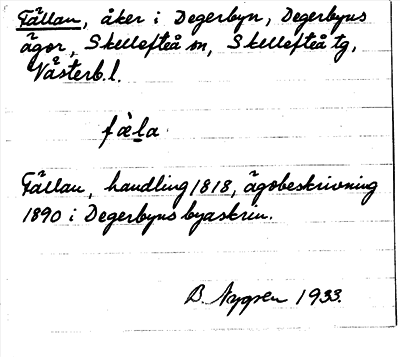 Fällan, åker i Degerbyn, Degerbyns
ägor, Skellefteå sn, Skellefteå tg,
Västerb.l.
fä̀la.
Fällan, handling 1818, ägobeskrivning
1890 i Degerbyns byaskrin.
B. Nygren 1933.